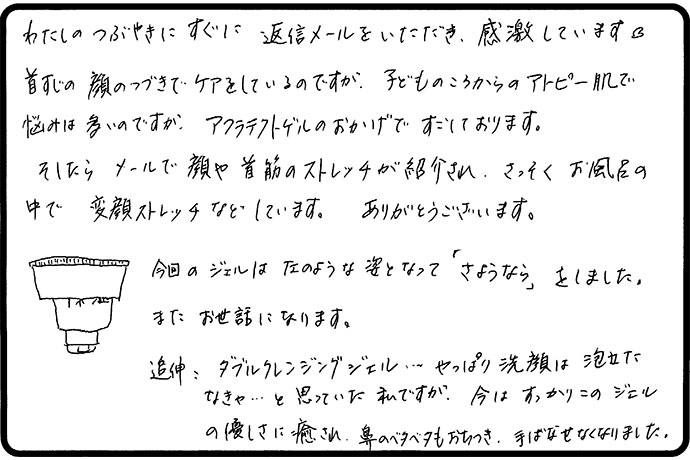 わたしのつぶやきに すぐに 返信メールを いただき、感激しています
首すじの 顔のつづきで ケアをしているのですが、子どものころからの アトピー肌で
悩みは 多いのですが、アクラテクトゲルのおかげで すごしております。
そしたら メールで 顔や 首筋のストレッチが紹介され、さっそく お風呂の
中で 変顔ストレッチなどしています。 ありがとうございます。
今回の ジェルは 左のような 姿となって「さようなら」をしました。
また お世話になります。
追伸: ダブルクレンジングジェル… やっぱり 洗顔は 泡立た
なきゃ…と思っていた 私ですが、今は すっかりこの ジェル
の優しさに癒され、鼻のベタベタもおちつき、手ばなせなくなりました。